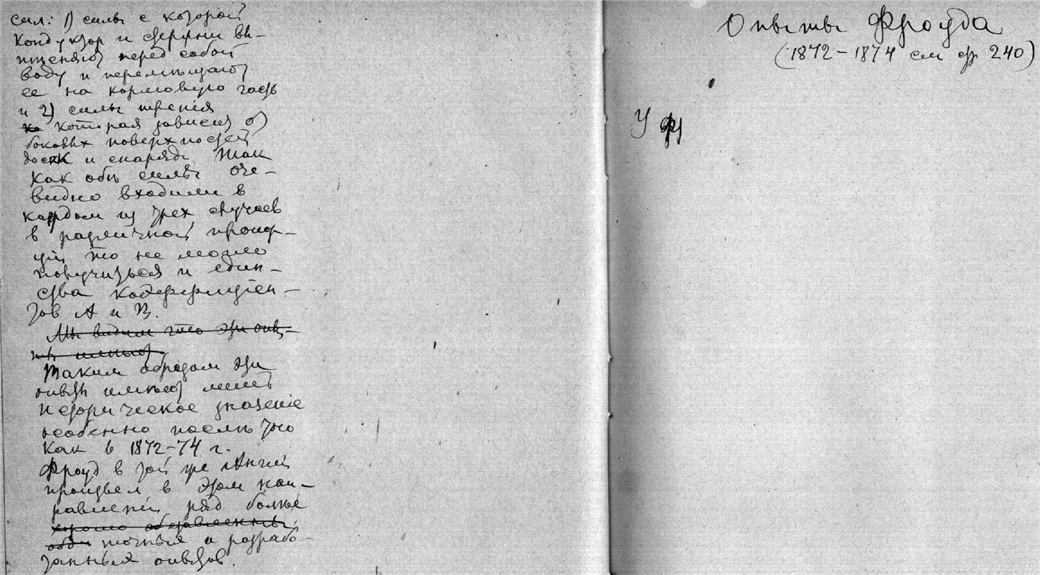 сил: 1) силы с которой
кондуктор и стержни вы-
тщеняют перед собой
воду и перемещают
ее на кормовую часть
и 2) силы трения
которая зависела от
боковых поверхностей
досок и снаряда. Так
как обе силы оче-
видно входили в
каждом из трех случаев
в различной пропор-
ции то не могло
получиться и един-
ства коэффициен-
тов А и В.
Мы видим что эти опы-
ты имеют
Таким образом эти
опыты имеют лишь
историческое значенiе
особенно после того
как в 1872-74 г.
Фроуд в той же Англии
произвел в этом нап-
равлении ряд более
хорошо обставленных
точных и разрабо-
танных опытов.
Опыты Фроуда
(1872-1874 см стр 240)
У Фр